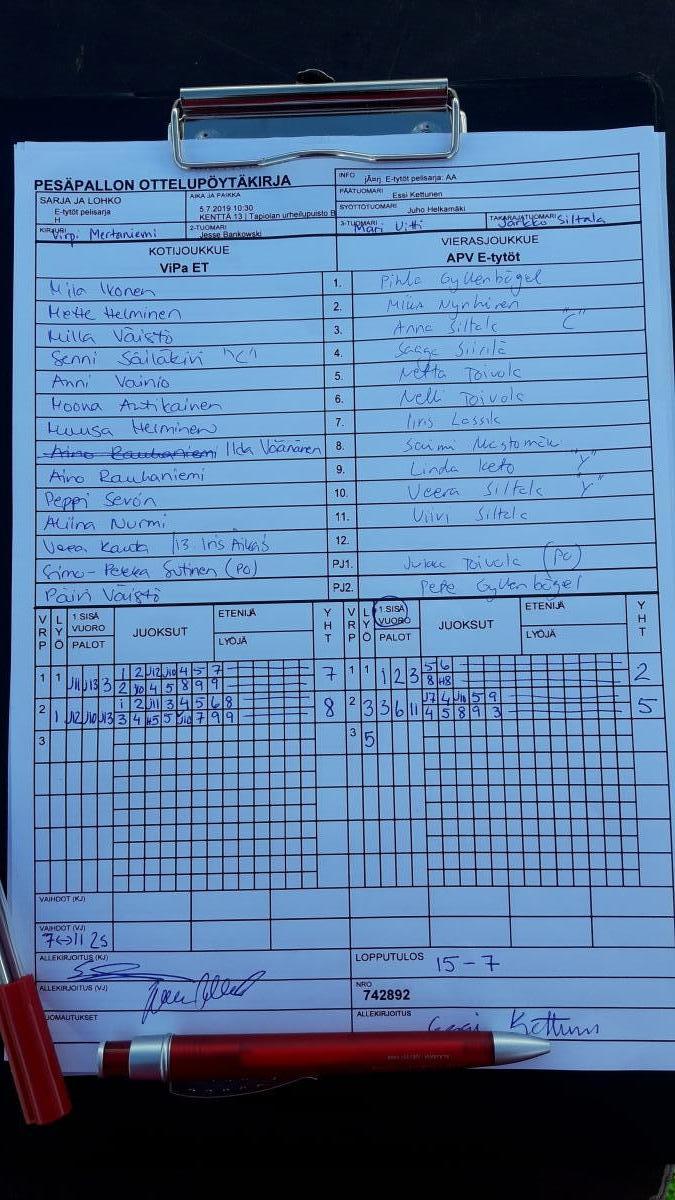 PESÄPALLON OTTELUPÖYTÄKIRJA
INFO jÄ¤rj. E-tytöt pelisarja: AA
SARJA JA LOHKO
E-tytöt pelisarja
H
AIKA JA PAIKKA
5.7.2019 10:30
KENTTÄ 13 | Tapiolan urheilupuisto B
PÄÄTUOMARI Essi Kettunen
SYÖTTÖTUOMARI Juho Helkamäki
KIRJURI Virpi Mertaniemi
2-TUOMARI Jesse Bankowski
3-TUOMARI Mari Vitti
TAKARAJATUOMARI Jarkko Siltala
KOTIJOUKKUE
ViPa ET
VIERASJOUKKUE
APV E-tytöt
Mila Ikonen 1. Pihla Gyllenbögel
Mette Helminen 2. Miisa Nyrhinen
Milla Väistö 3. Anna Siltala "C"
Senni Säiläkivi "C" 4. Saaga Siirilä
Anni Vainio 5. Netta Toivola
Moona Antikainen 6. Nelli Toivola
Muusa Herminen 7. Iiris Lassila
Aino Rauhaniemi Ilda Väänänen 8. Saimi
Aino Rauhaniemi 9. Linda Keto "Y"
Peppi Sevón 10. Veera Siltala "Y"
Aliina Nurmi 11. Viivi Siltala
Veea Kauta /13. Iris Äikäs 12.
Simo-Pekka Sutinen (PO) PJ1. Jukka Toivola (PO)
Päivi Väistö PJ2. Pepe Gyllenbögel
VRP LYÖ 1.SISÄ VUORO PALOT JUOKSUT ETENIJÄ LYÖJÄ YHT VRP LYÖ 1.SISÄ VUORO PALOT JUOKSUT ETENIJÄ LYÖJÄ YHT
1 1 J11 J13 3 1 2 J12 J10 4 5 7 7 1 1 1 2 3 5 6 2
2 10 4 5 8 9 9 8 H8
2 1 J12 J10 J13 1 2 J11 3 4 5 6 8 8 2 3 3 6 11 J7 4 J10 5 9 5
3 4 H5 5 J10 7 9 9 4 5 8 9 3
3 3 5
VAIHDOT (KJ)
VAIHDOT (VJ)
7↔11 2s
ALLEKIRJOITUS (KJ)
LOPPUTULOS 15-7
ALLEKIRJOITUS (VJ)
NRO
742892
UOMAUTUKSET
ALLEKIRJOITUS Essi Kettunen